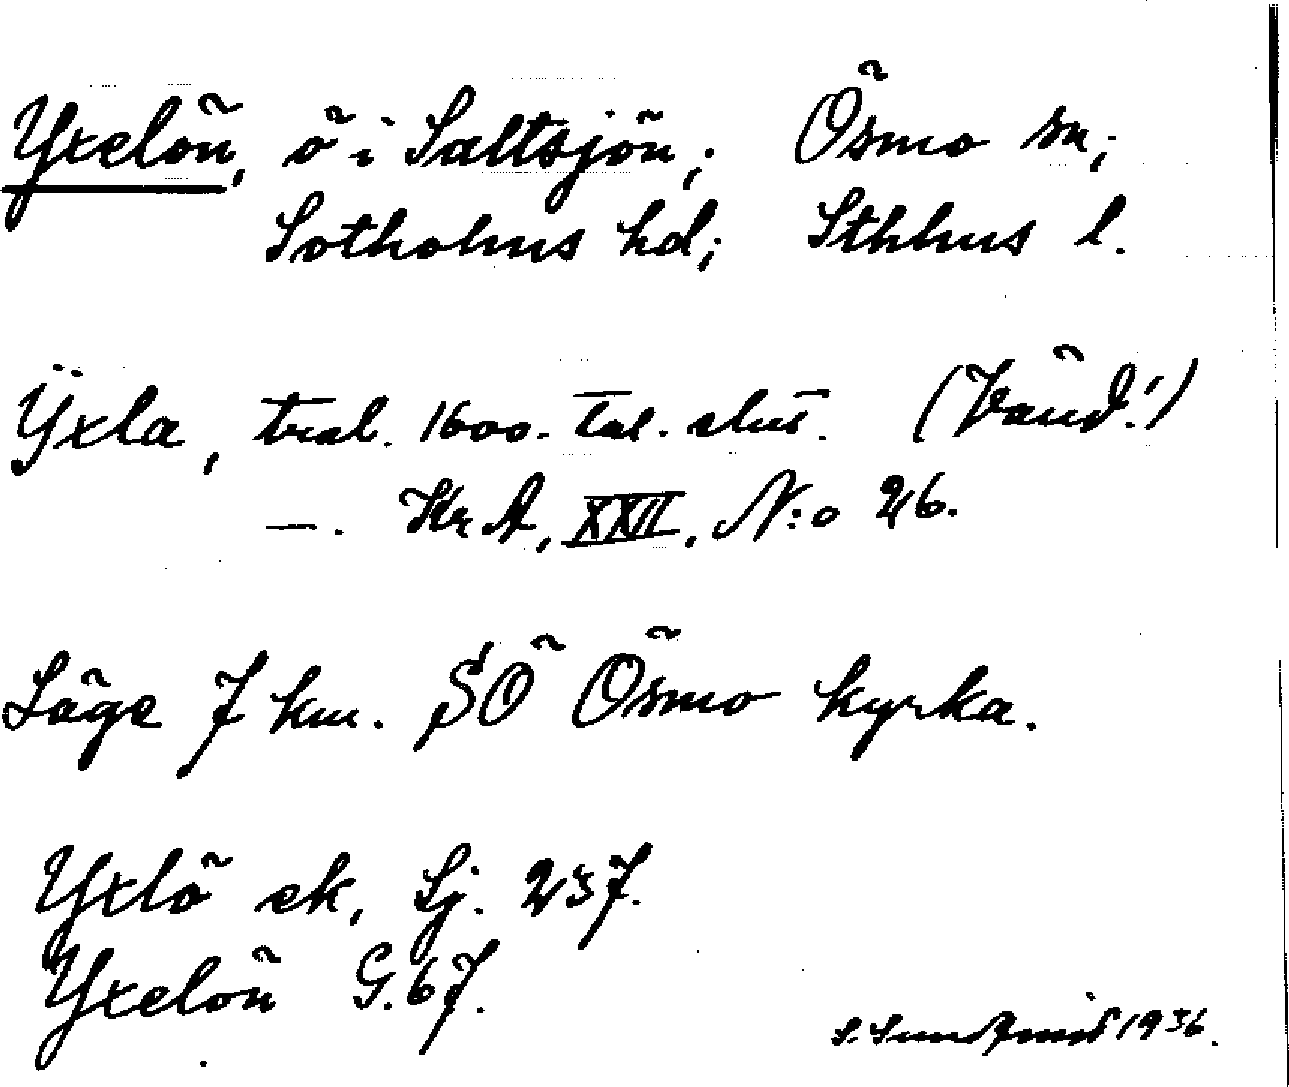 Yxelön, ö i Saltsjön; Ösmo sn;
Sotholms hd; Sthlms l.
Ÿxla, trol. 1600-tal. slut. (Vänd!)
—. Kr A, XXII, N:o 26.
Läge 7 km. SÖ Ösmo kyrka.
Yxlö ek, Sj. 257.
Yxelön G. 67.
S. 1936.